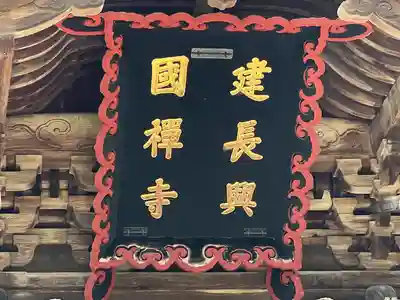 建長興
國禪寺